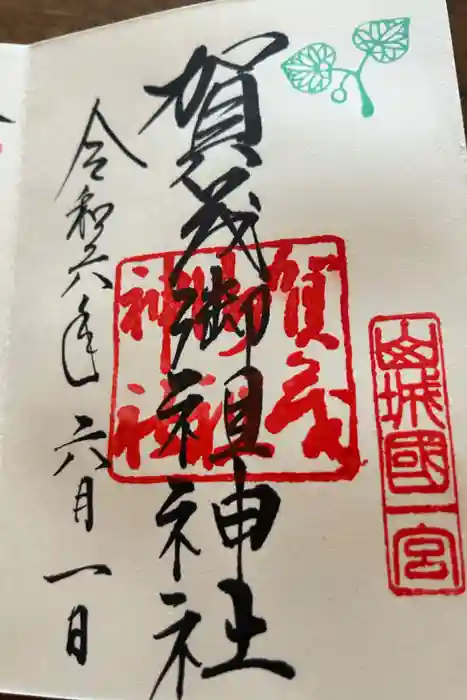 山城國一宮
賀茂御祖神社
賀茂
御祖
神社
令和六年六月一日